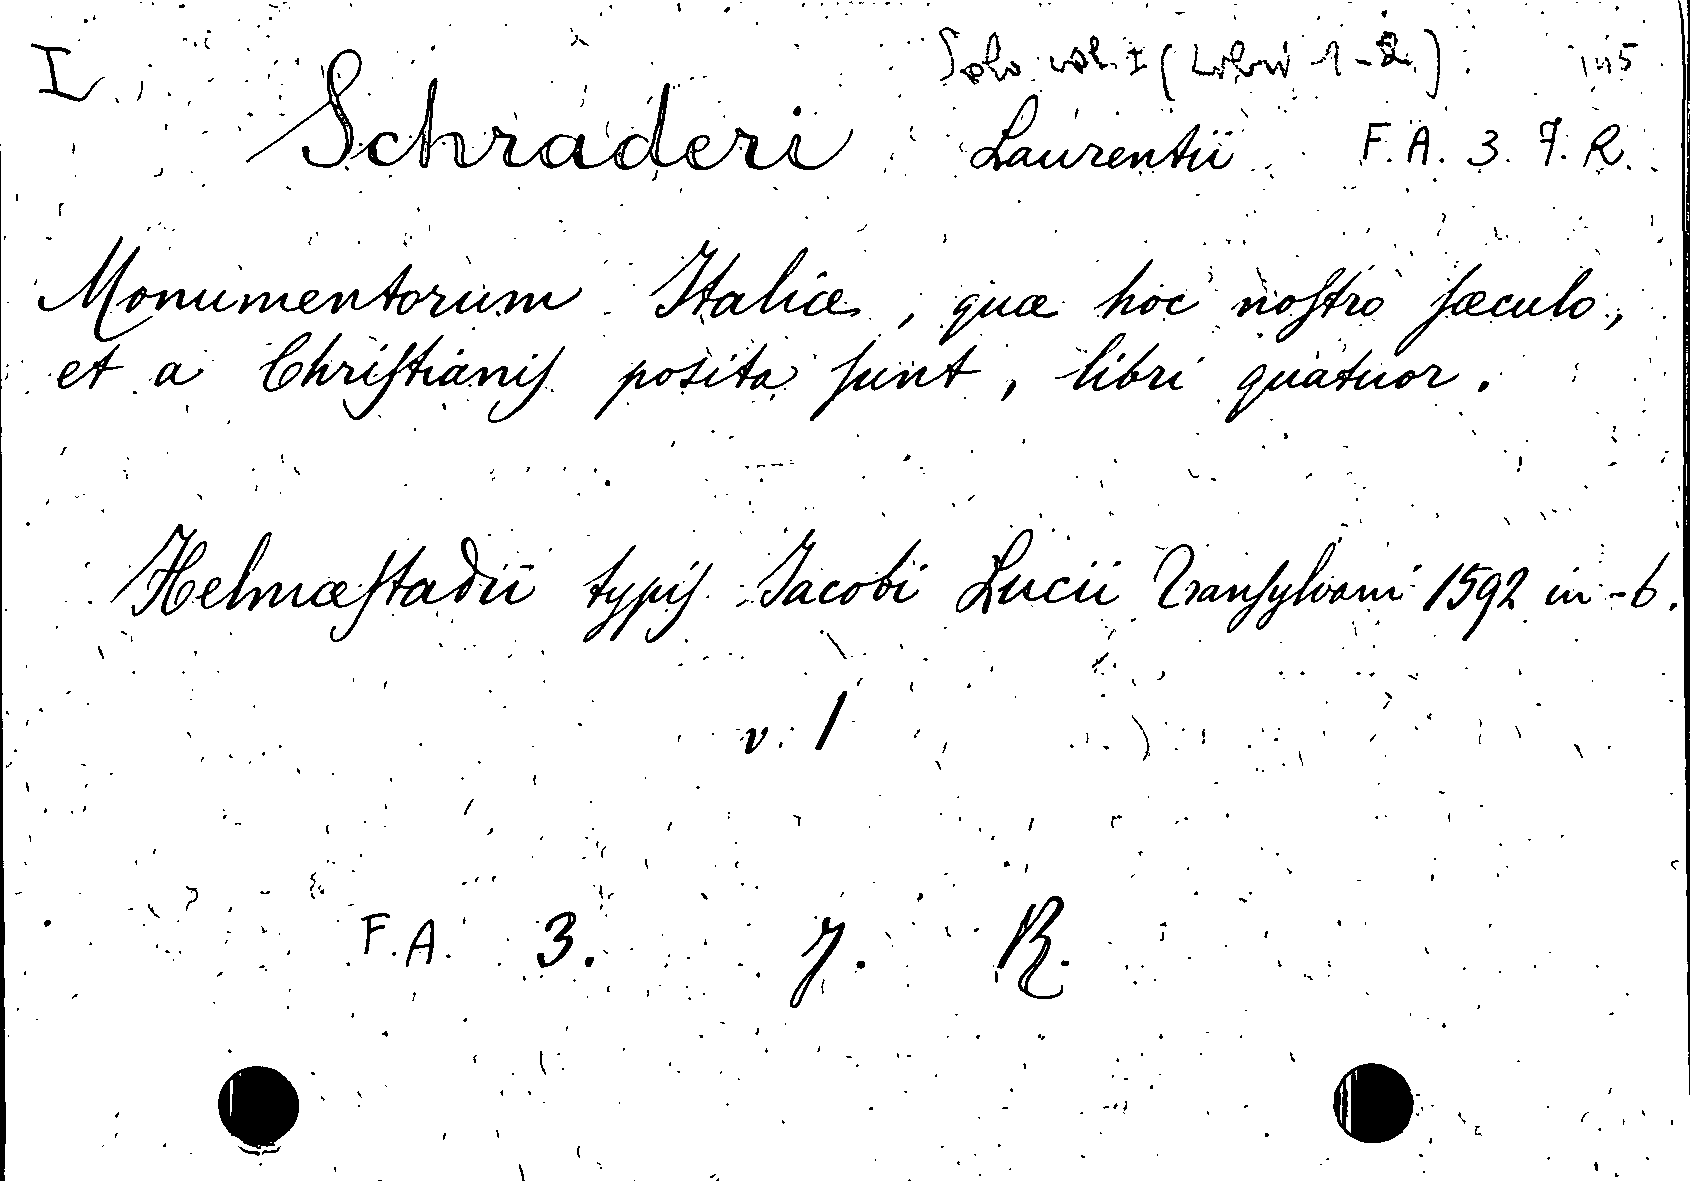 I Solo vol. I (Libri 1-2.) 145
Schraderi Laurentii F. A. 3. 7. R.
Monumentorum Italiæ, quæ hoc noſtro ſæculo,
et a Chriſtianiſ posita ſunt, libri quatuor.
Helmæſtadii typiſ Jacobi Lucii Tranſylvani 1592 in-6.
v. 1
F. A. 3. 7. R.